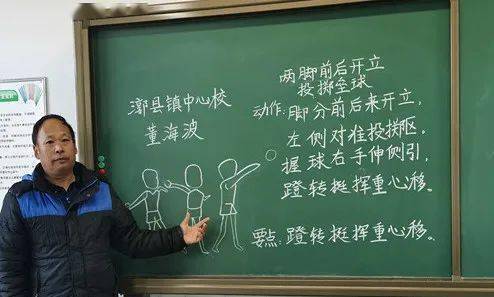 漷县镇中心校
董海波
两脚前后开立
投掷垒球
动作:脚分前后来开立,
左侧对准投掷区。
握球右手伸侧引,
蹬转挺挥重心移。
要点:蹬转挺挥重心移。